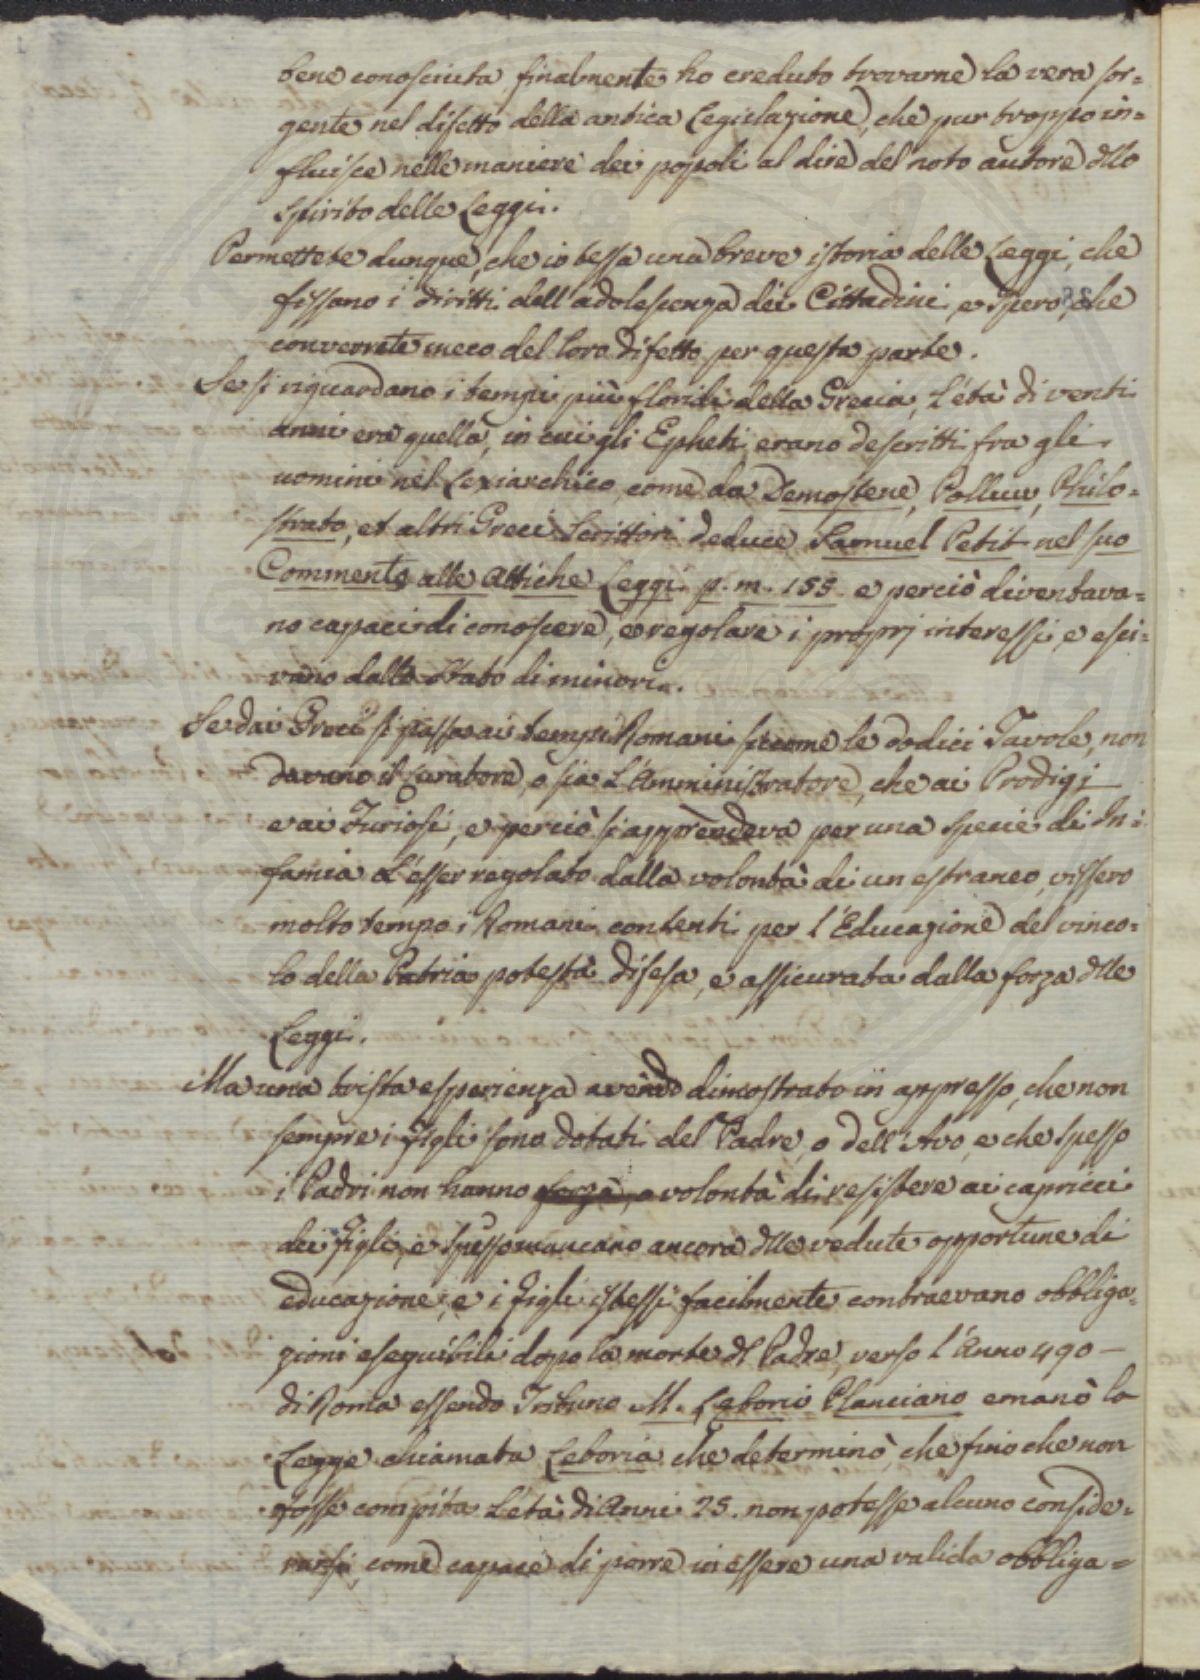 bene conosciuta finalmente ho creduto trovarne la vera sor=
gente nel difetto della antica Legislazione, che pur troppo in=
fluisce nelle maniere dei popoli al dire del noto autore dllo
spirito delle Leggi.
Permettete dunque, che io tessa una breve istoria delle Leggi, che
fissano i diritti dell'adolescenza dei Cittadini, e spero, che
converrete meco del loro difetto per questa parte.
Se si riguardano i tempi più floridi della Grecia, l'età di venti
anni era quella, in cui gli Epheti erano descritti fra gli
uomini nel Lexiarchico, come da Demostene, Polluce, Philo=
strato, et altri Greci Scrittori deduce Samuel Petit nel suo
Commento alle Attiche Leggi p. m. 155 e perciò diventava=
no capaci di conoscere, e regolare i proprj interessi, e esci=
vano dallo stato di minori.
Se dai Greci si passa ai tempi Romani siccome le dodici Tavole, non
davano il Curatore, o sia l'Amministratore, che ai Prodigi
e ai Furiosi, e perciò si apprendeva per una specie di In=
famia l'esser regolato dalla volontà di un estraneo, vissero
molto tempo i Romani contenti per l'Educazione del vinco=
lo della Patria potestà difesa, e assicurata dalla forza dlle
Leggi.
Ma una trista esperienza avendo dimostrato in appresso, che non
sempre i Figli sono dotati del Padre, o dell'Avo, e che spesso
i Padri non hanno forza, o volontà di resistere ai capricci
dei Figli, e spesso mancano ancora dlle vedute opportune di
educazione, e i Figli istessi facilmente contraevano obbliga=
zioni eseguibili dopo la morte dl Padre, verso l'Anno 490 —
di Roma essendo Tribuno M. Letorio Planciano emanò la
Legge chiamata Letoria che determinò, che fino che non
fosse compita l'età di Anni 25. non potesse alcuno conside=
rarsi come capace di porre in essere una valida obbliga=